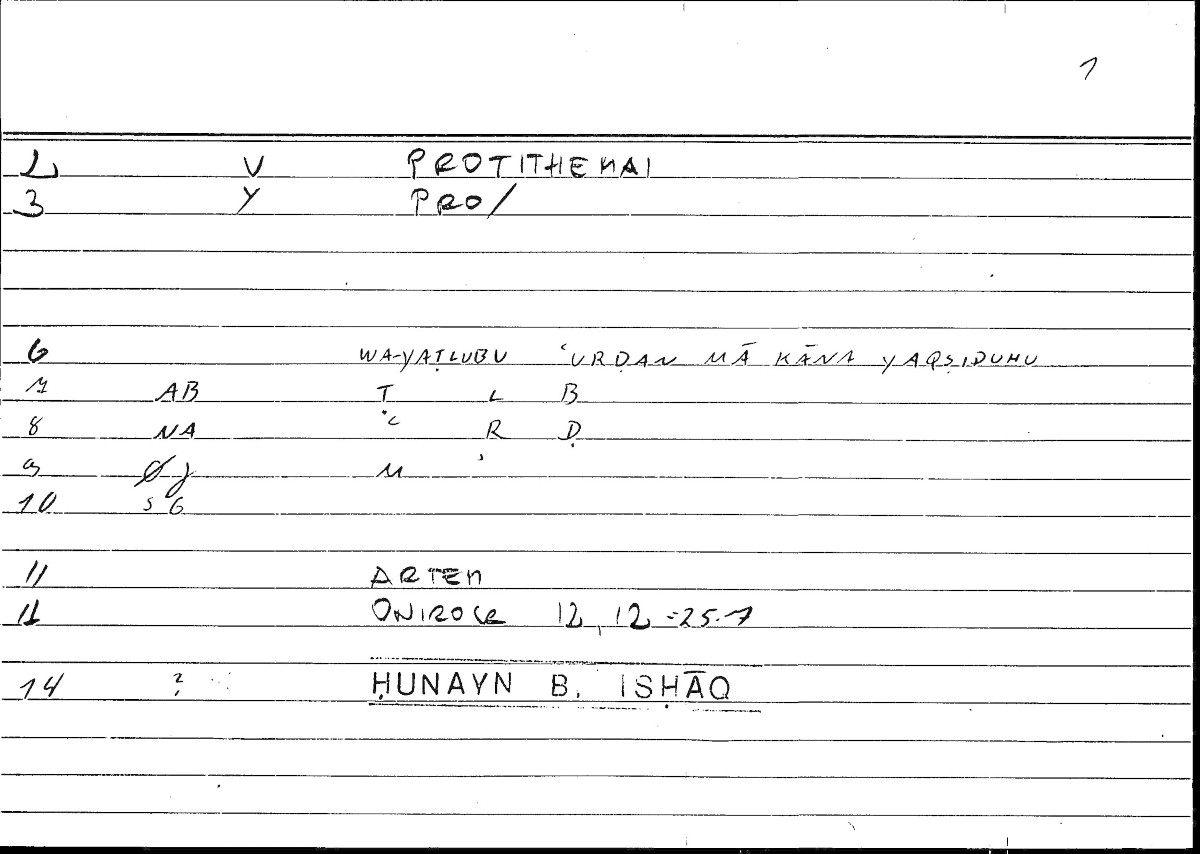 1
2 V PROTITHEMAI
3 Y PRO/
6 WA-YAṬLUBU ʿURḌAN MĀ KĀNA YAQṢIDUHU
7 AB Ṭ L B
8 NA ʿ R Ḍ
9 M
10 SG
11 ARTEM
12 ONIROCR 12,12=25.7
14 ? ḤUNAYN B. ISḤĀQ